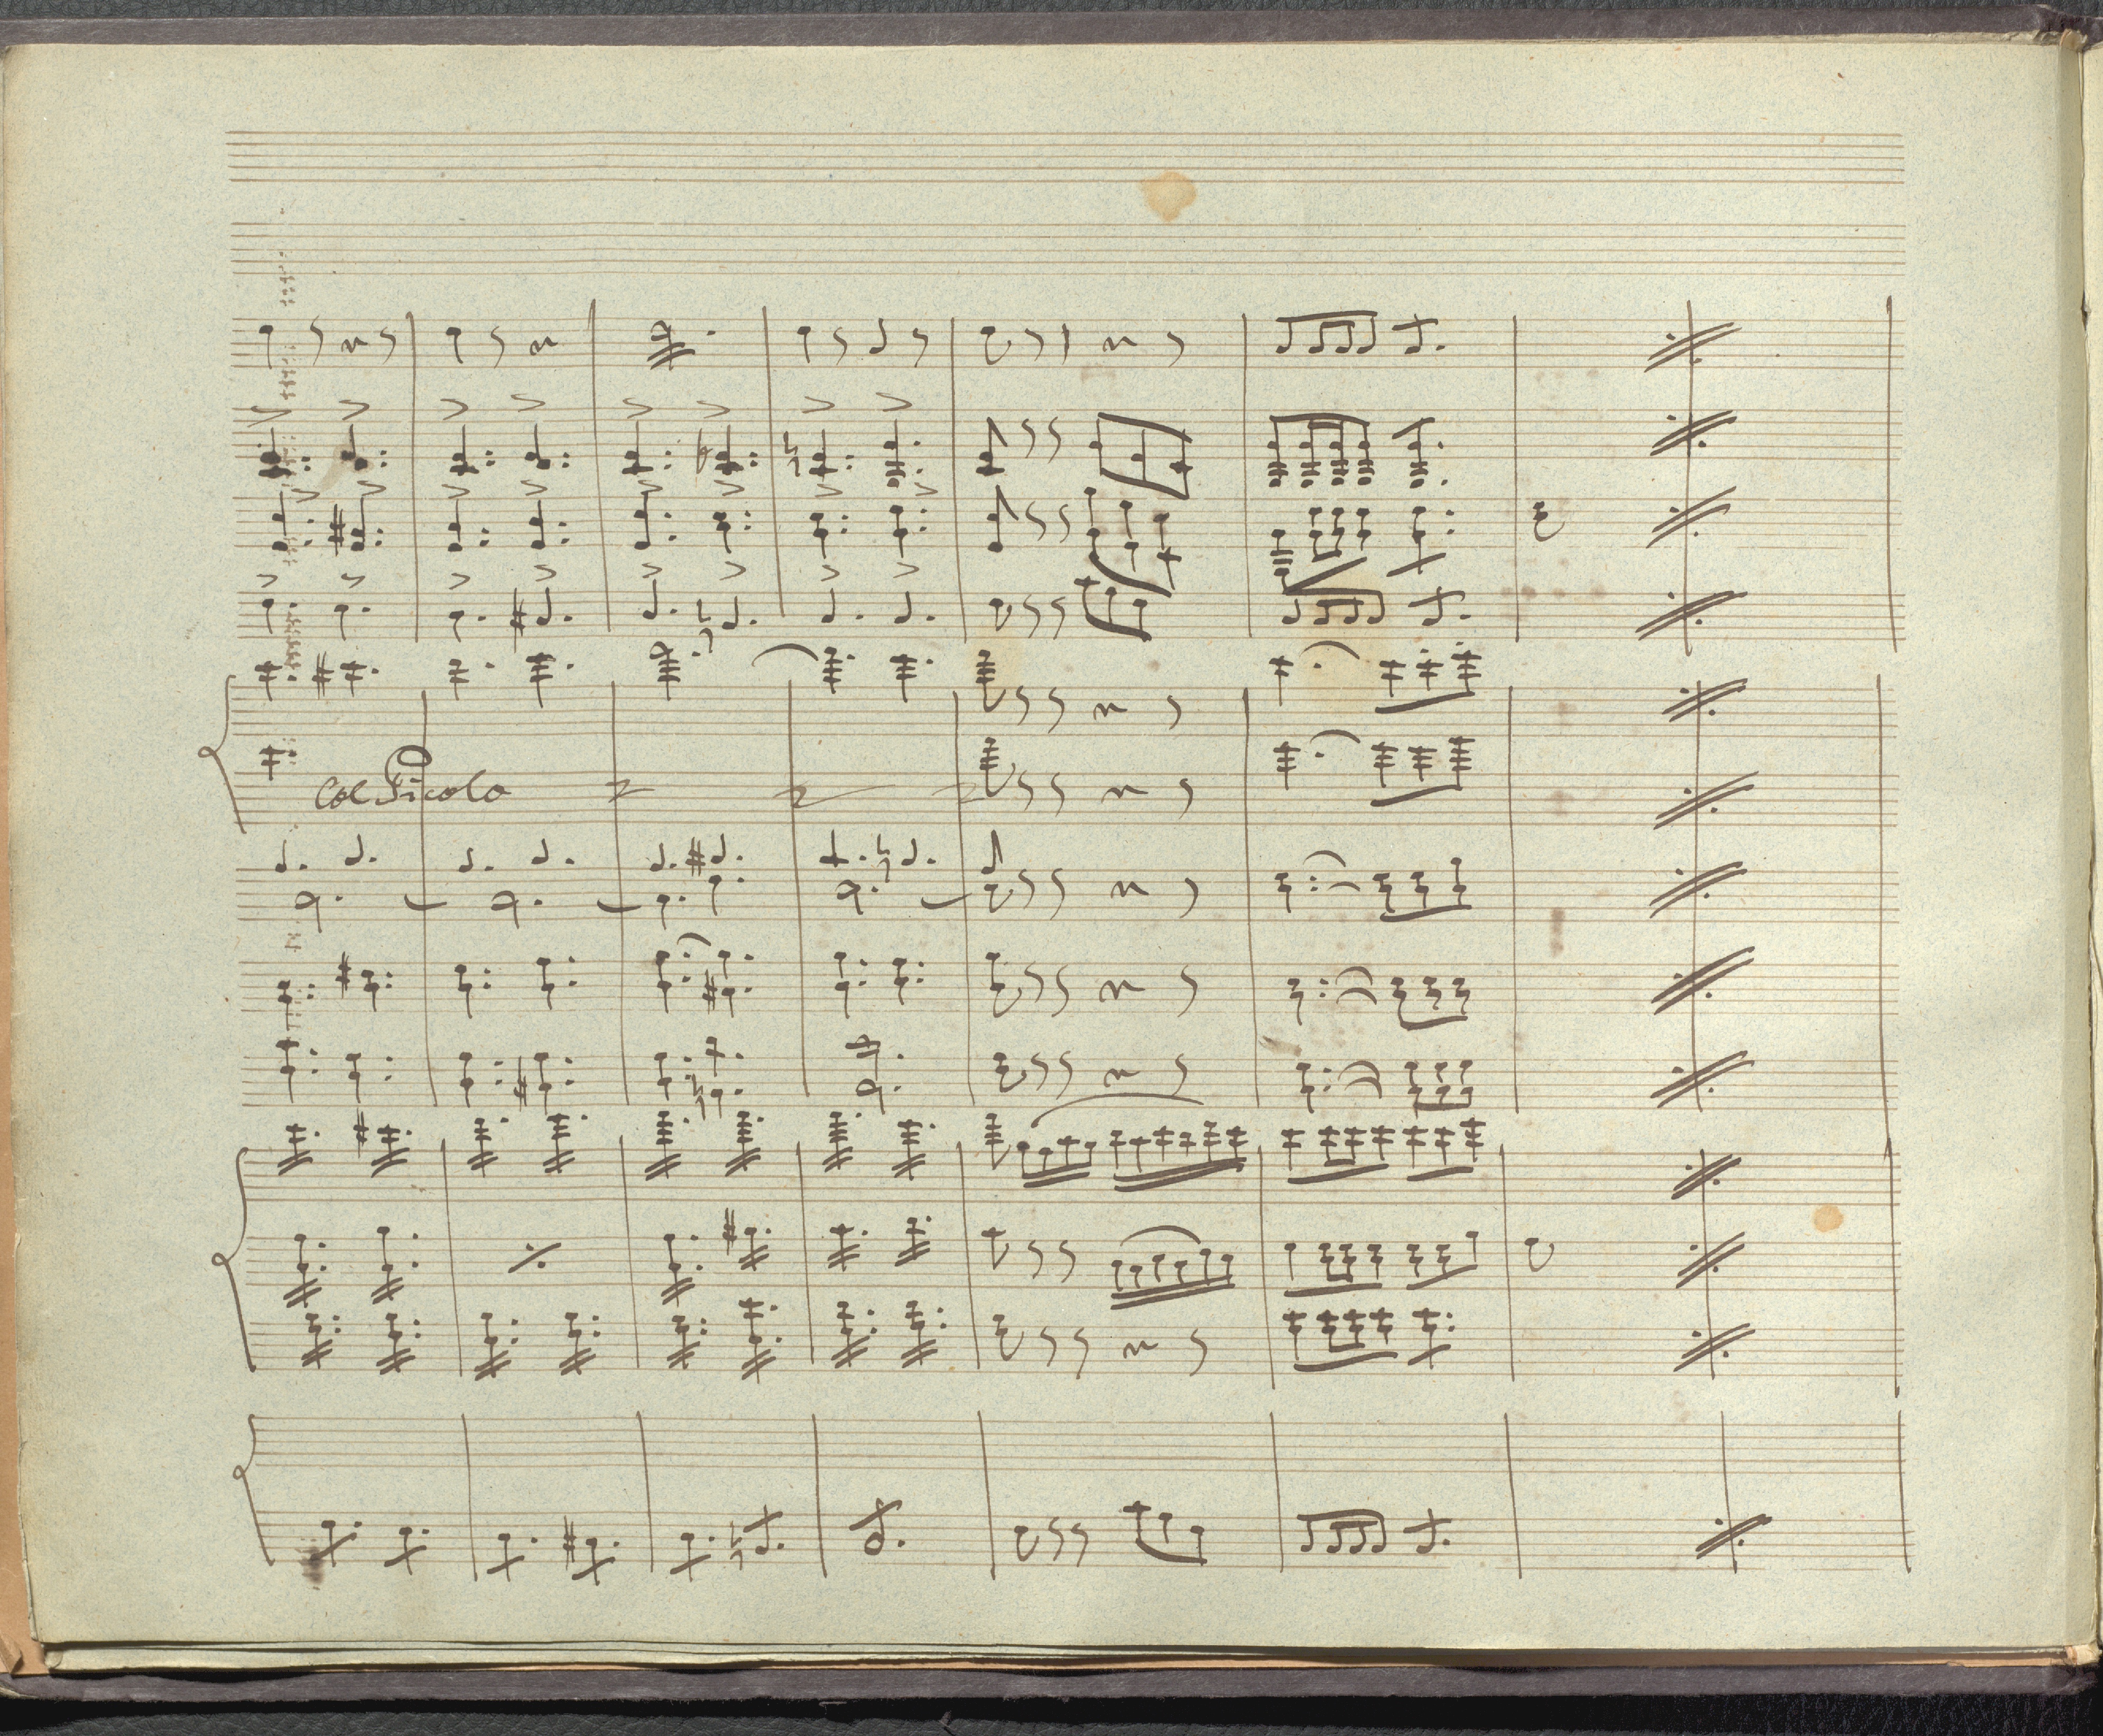 Col Picolo